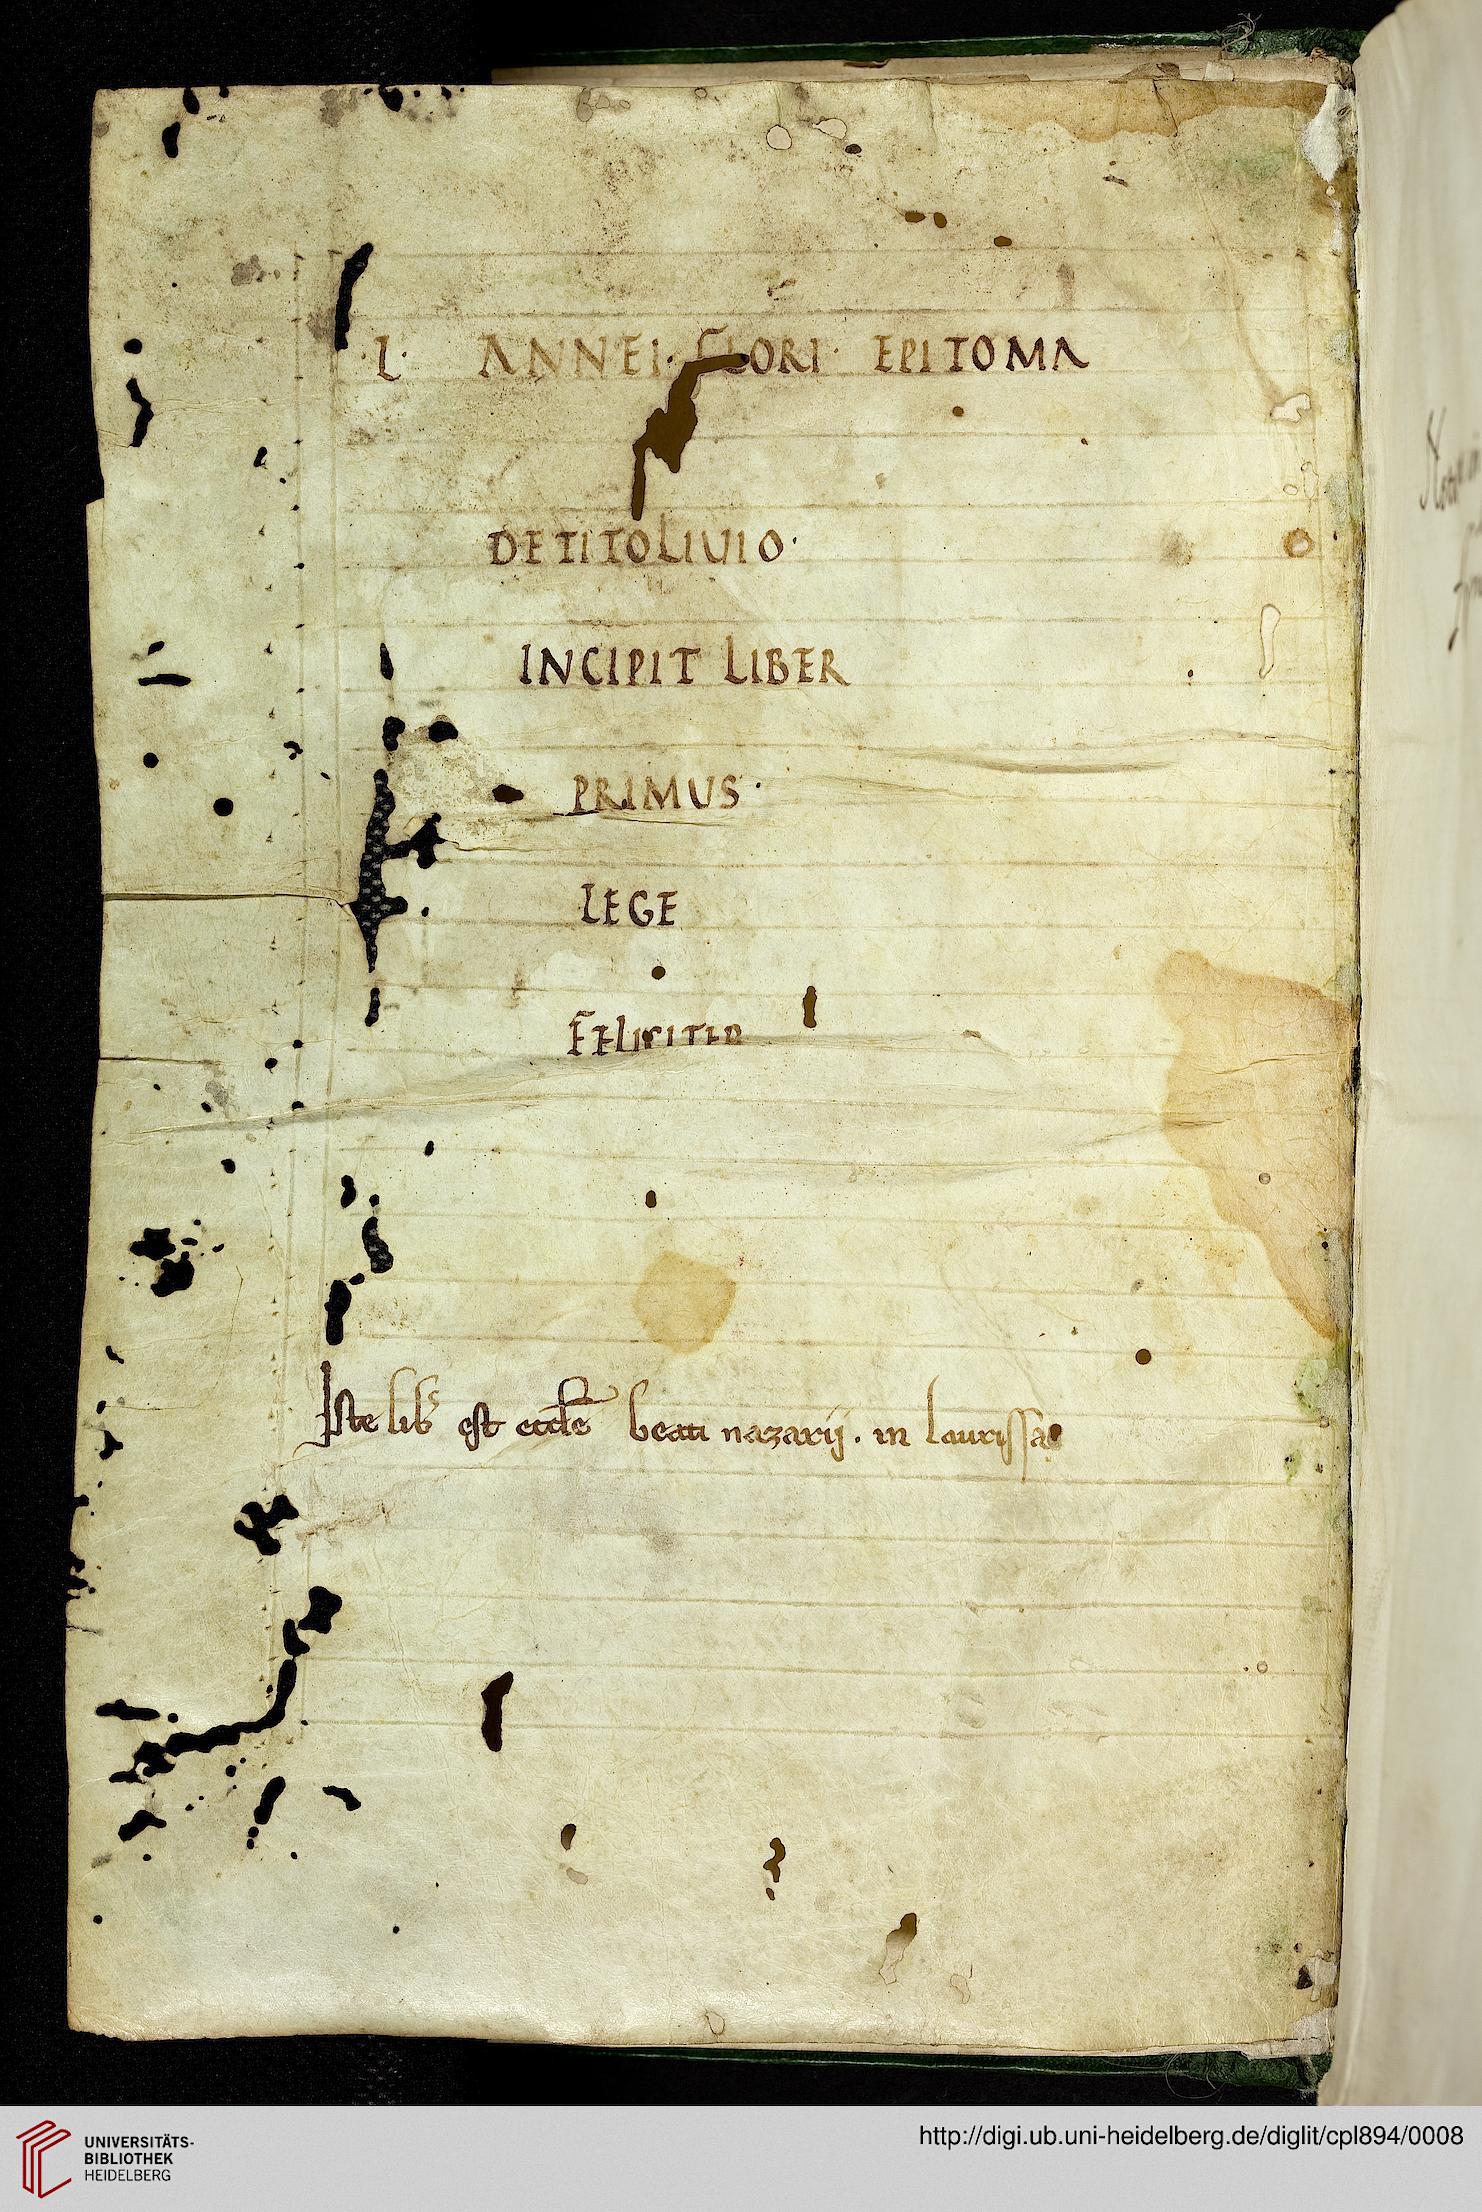 ·L· ANNEI· FLORI· EPITOMA
DE TITO LIVIO·
INCIPIT LIBER
PRIMUS·
LEGE
FELICITER
Iste lib̄ est eccl̄e beati nazarij. in laurissa
UNIVERSITÄTS-
BIBLIOTHEK
HEIDELBERG
http://digi.ub.uni-heidelberg.de/diglit/cpl894/0008